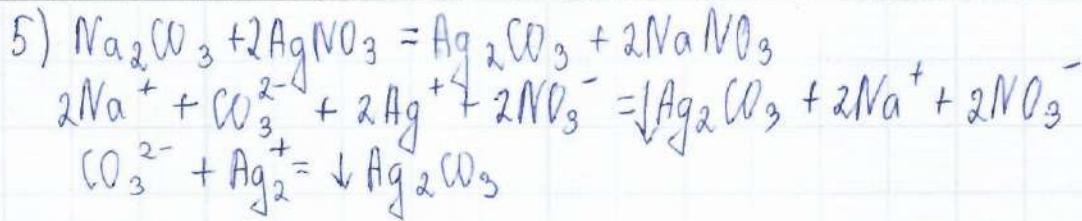 5) Na₂CO₃ + 2AgNO₃ = Ag₂CO₃ + 2NaNO₃
2Na⁺ + CO₃²⁻ + 2Ag⁺ + 2NO₃⁻ = ↓Ag₂CO₃ + 2Na⁺ + 2NO₃⁻
CO₃²⁻ + Ag₂⁺ = ↓Ag₂CO₃